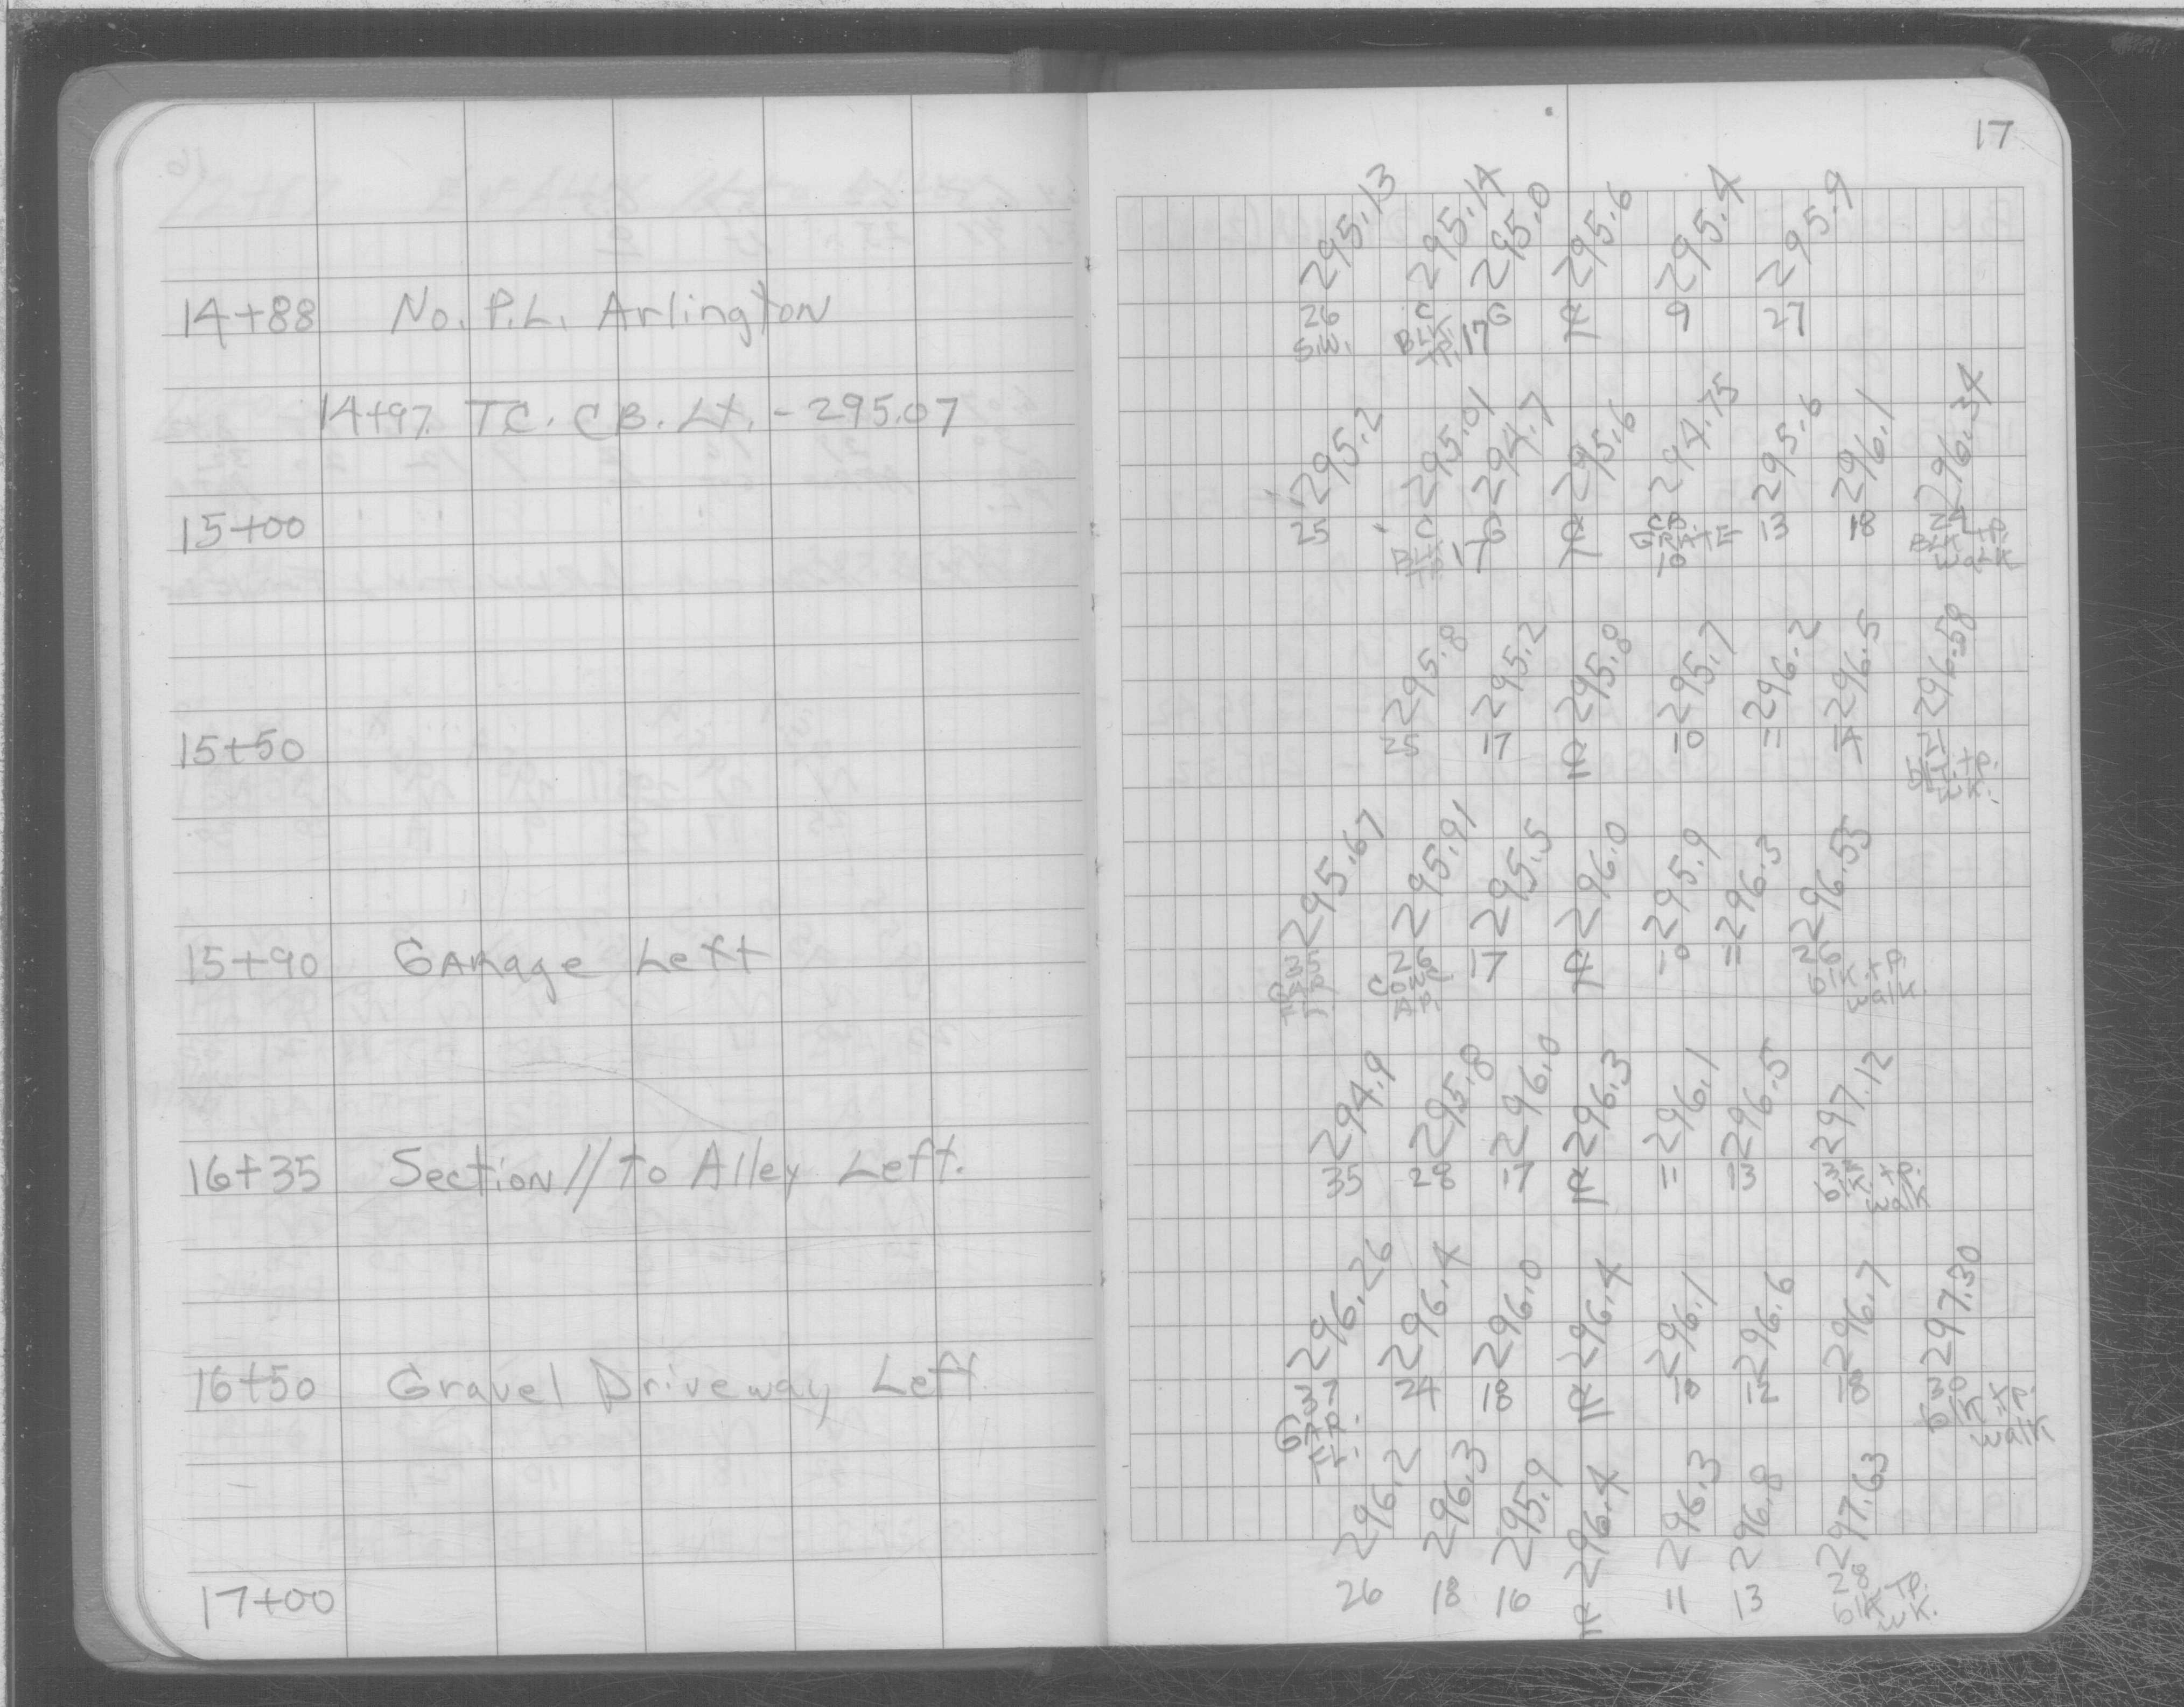 17
295.13 295.14 295.0 295.6 295.4 295.9
14+88 No. P.L. Arlington
26 C G ℄ 9 27
S.W. BLK. 17
TP.
14+97 TC. CB. Lt. - 295.07
295.2 295.01 294.7 295.6 294.75 295.6 296.1 296.34
15+00
25 C G ℄ CB 13 18 24
BLK 17 GRATE BLK. tp.
TP 10 walk
295.8 295.2 295.8 295.7 296.2 296.5 296.58
15+50
25 17 ℄ 10 11 14 21
blk. tp.
wk.
295.67 295.91 295.5 296.0 295.9 296.3 296.55
15+90 GARage Left
35 26 17 ℄ 10 11 26
GAR CONC blk. tp.
FL. AP. walk
294.9 295.8 296.0 296.3 296.1 296.5 297.12
16+35 Section // to Alley Left.
35 28 17 ℄ 11 13 32
blk. tp.
walk
296.26 296.4 296.0 296.4 296.1 296.6 296.7 297.30
16+50 Gravel Driveway Left
37 24 18 ℄ 10 12 18 30
GAR. blk tp.
FL. walk
296.2 296.3 295.9 296.4 296.3 296.8 297.63
17+00
26 18 16 ℄ 11 13 28
blk TP.
wk.